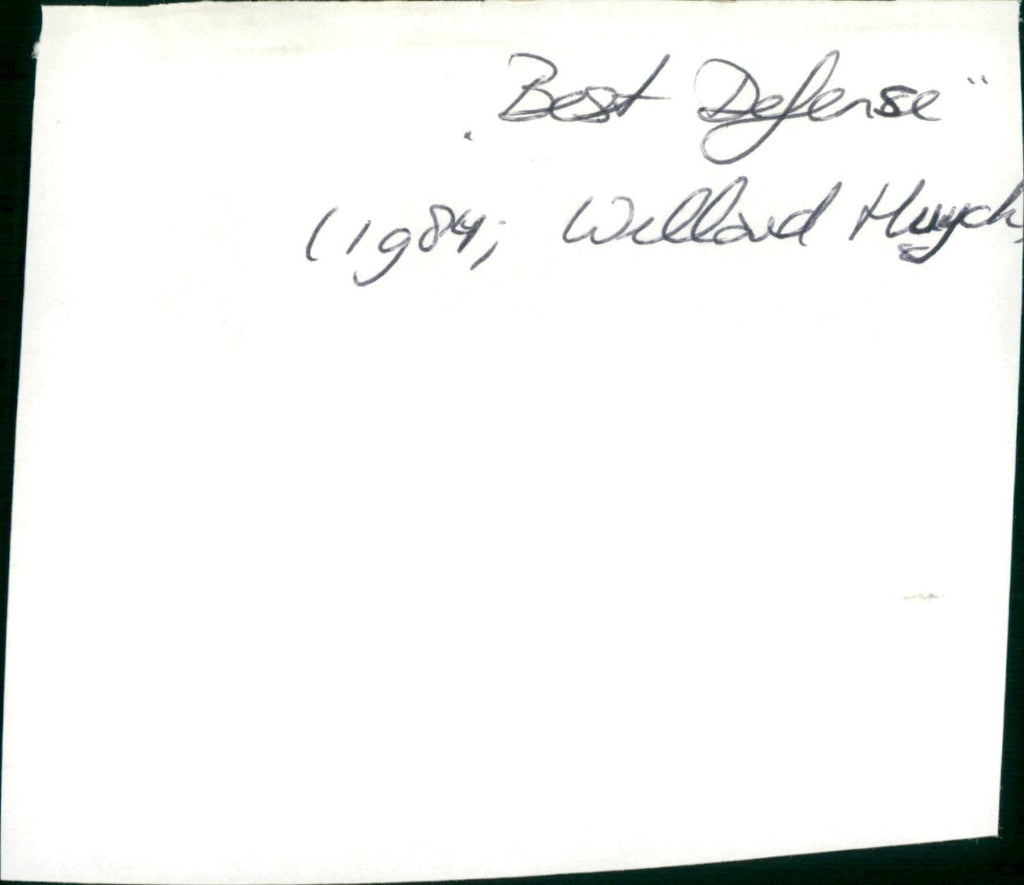 "Best Defense"
(1984; Willard Huyck